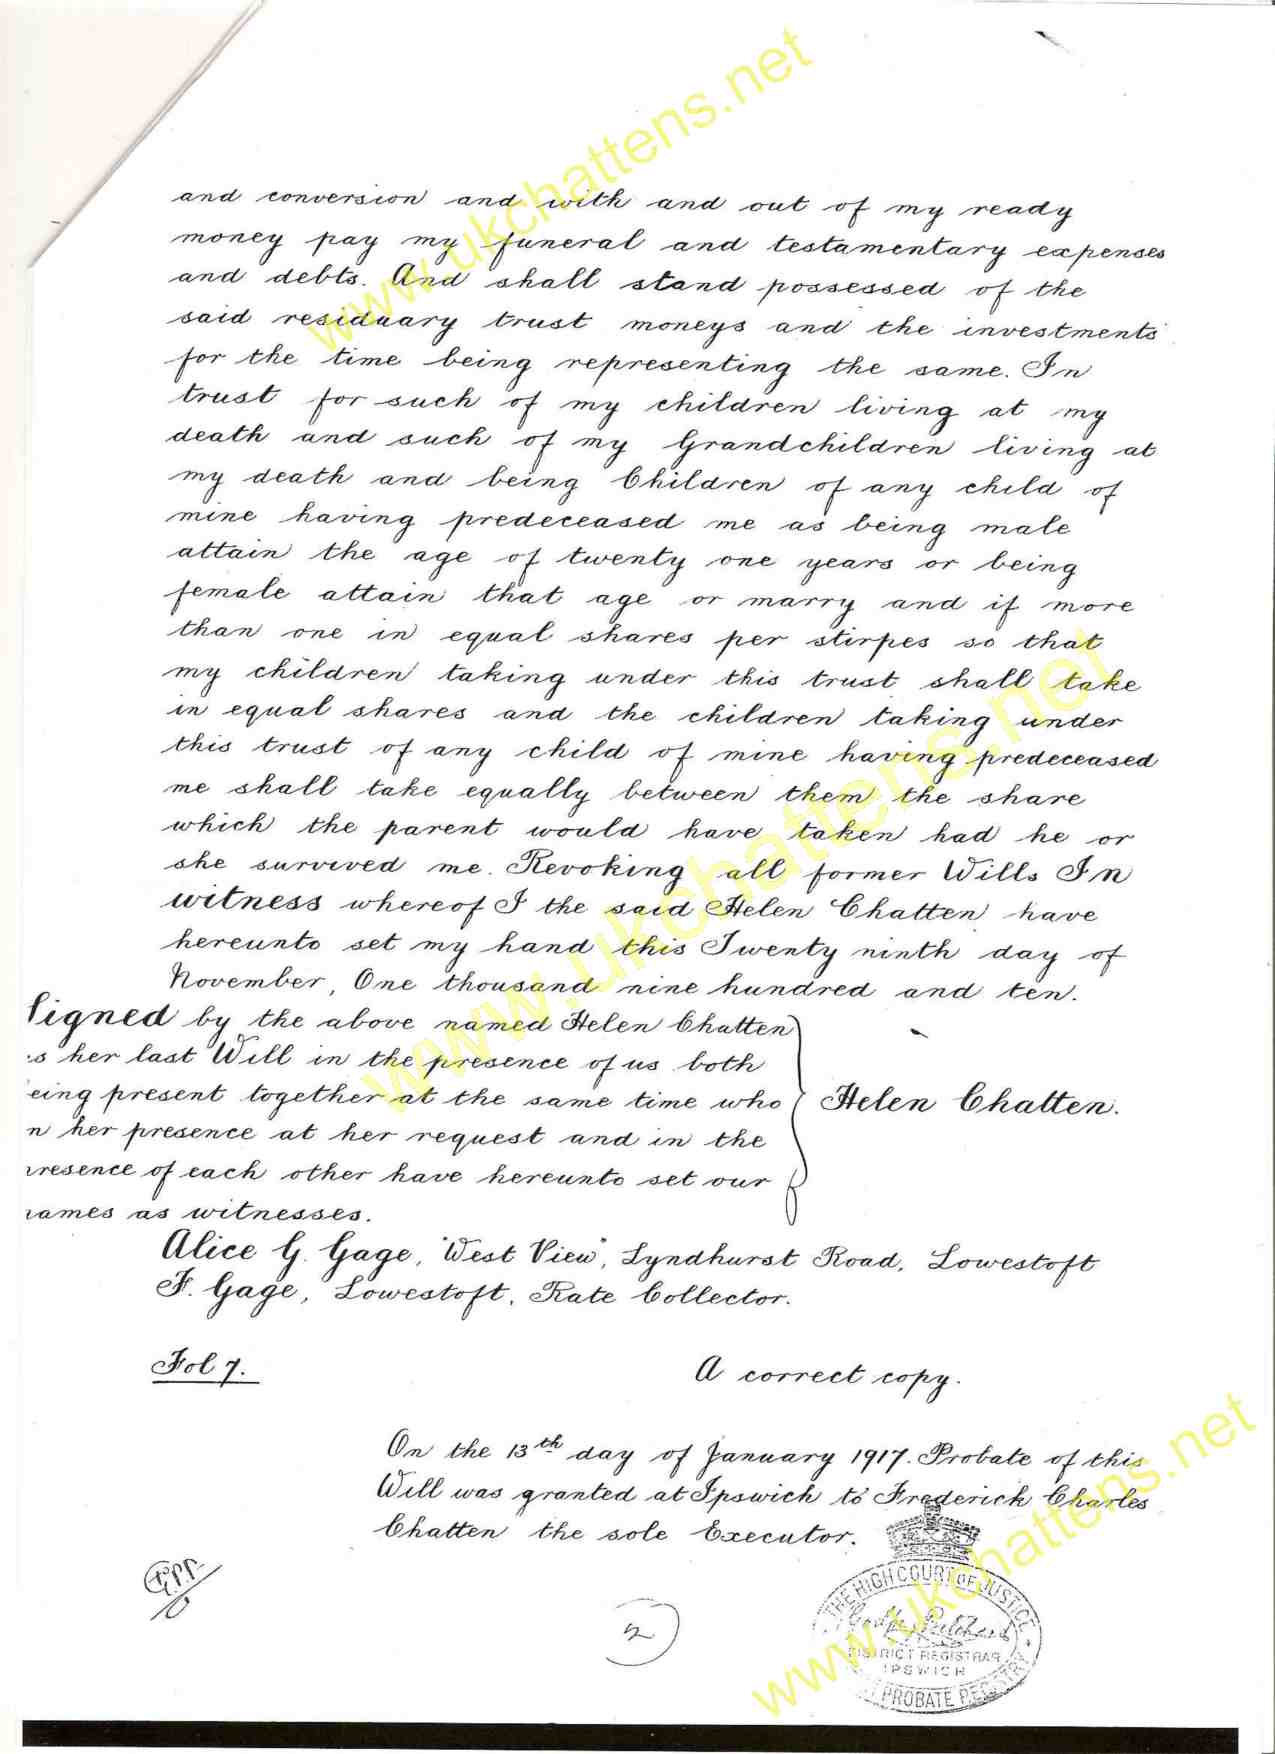 and conversion and with and out of my ready
money pay my funeral and testamentary expenses
and debts. And shall stand possessed of the
said residuary trust moneys and the investments
for the time being representing the same. In
trust for such of my children living at my
death and such of my Grandchildren living at
my death and being Children of any child of
mine having predeceased me as being male
attain the age of twenty one years or being
female attain that age or marry and if more
than one in equal shares per stirpes so that
my children taking under this trust shall take
in equal shares and the children taking under
this trust of any child of mine having predeceased
me shall take equally between them the share
which the parent would have taken had he or
she survived me. Revoking all former Wills In
witness whereof I the said Helen Chatten have
hereunto set my hand this Twenty ninth day of
November, One thousand nine hundred and ten.
Signed by the above named Helen Chatten
s her last Will in the presence of us both
eing present together at the same time who
n her presence at her request and in the
resence of each other have hereunto set our
names as witnesses.
Helen Chatten.
Alice G. Gage, "West View", Lyndhurst Road, Lowestoft
F. Gage, Lowestoft, Rate Collector.
Fol 7.
A correct copy.
On the 13th day of January 1917. Probate of this
Will was granted at Ipswich to Frederick Charles
Chatten the sole Executor.
2
THE HIGH COURT OF JUSTICE
DISTRICT REGISTRAR
IPSWICH
PROBATE REGISTRY
www.ukchattens.net
www.ukchattens.net
www.ukchattens.net